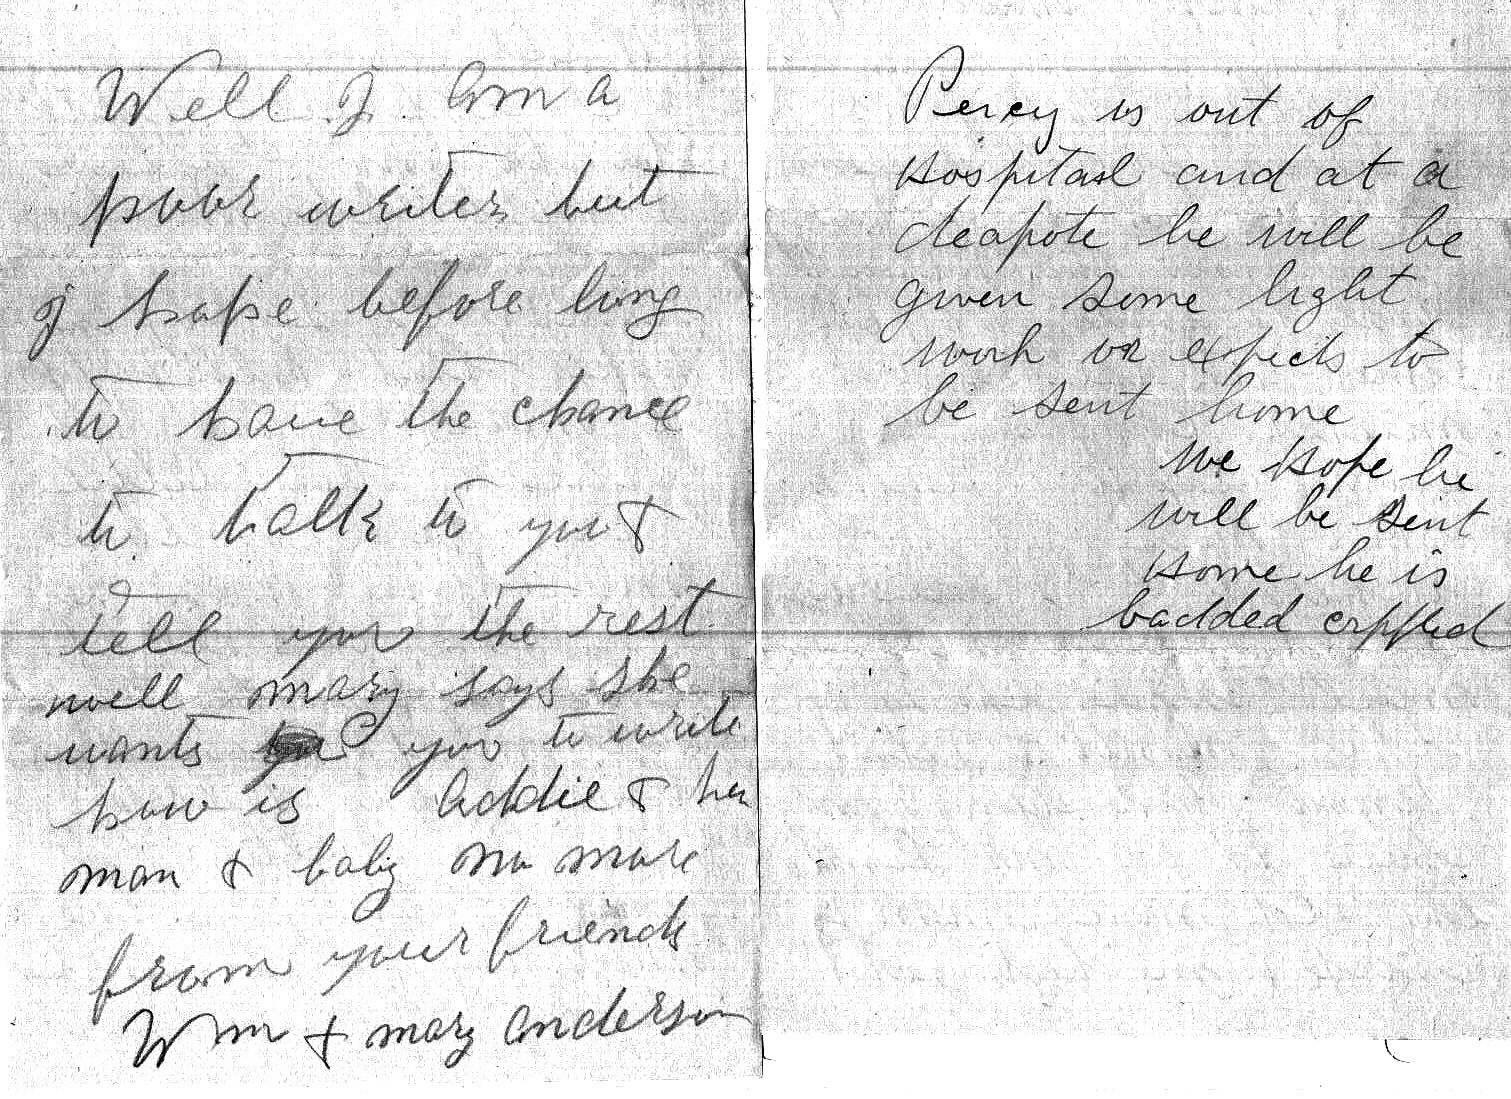 Well I am a
poor writer but
I hope before long
to have the chance
to talk to you &
tell you the rest
well mary says she
wants you to write
how is Addie & her
man & baby no more
from your friends
Wm & mary anderson
Percy is out of
Hospital and at a
deapote he will be
given some light
work or expects to
be sent home
we hope he
will be sent
home he is
badded crippled